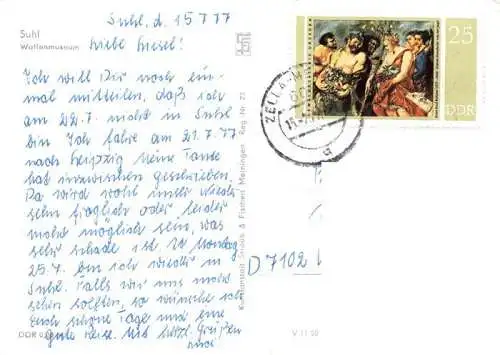 Suhl
Waffenmuseum
Suhl, d. 15.7.77
Liebe Gisel!
Ich will Dir noch ein-
mal mitteilen, daß ich
am 22.7. nicht in Suhl
bin Ich fahre am 21.7.77
nach Leipzig meine Tante
hat inzwischen geschrieben.
Da wird wohl unser Wieder-
sehn fraglich oder leider
nicht möglich sein, was
sehr schade ist. Montag
25.7. bin ich wieder in
Suhl. Falls wir uns nicht
sehen sollten, so wünsche ich
Euch schöne Tage und eine
gute Reise. Mit herzl. Grüßen
DDR
V 11 50
Kunstanstalt Straub & Fischer Meiningen
Reg. Nr.
25
DDR
ZELLA-M
D 7102